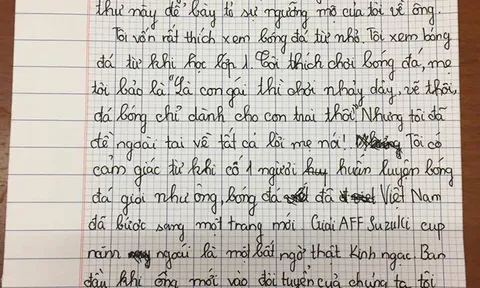 thư này để bày tỏ sự ngưỡng mộ của tôi về ông.
Tôi vốn rất thích xem bóng đá từ nhỏ. Tôi xem bóng
đá từ khi học lớp 1. Tôi thích chơi bóng đá, mẹ
tôi bảo là "Là con gái thì chơi nhảy dây, vẽ thôi,
đá bóng chỉ dành cho con trai thôi". Nhưng tôi đã
để ngoài tai về tất cả lời mẹ nói! Tôi có
cảm giác từ khi có 1 người huấn luyện bóng
đá giỏi như ông, bóng đá đã Việt Nam
đã bước sang một trang mới. Giải AFF Suzuki cup
năm ngoái là một bất ngờ thật kinh ngạc. Ban
đầu khi ông mới vào đội tuyển của chúng ta, tôi